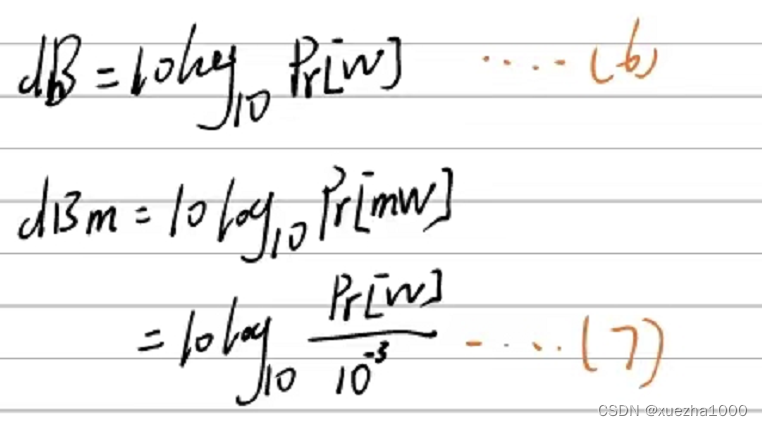 dB = 10 log₁₀ Pr[W] ..... (6)
dBm = 10 log₁₀ Pr[mW]
= 10 log₁₀ Pr[W] / 10⁻³ ..... (7)
CSDN @xuezha1000